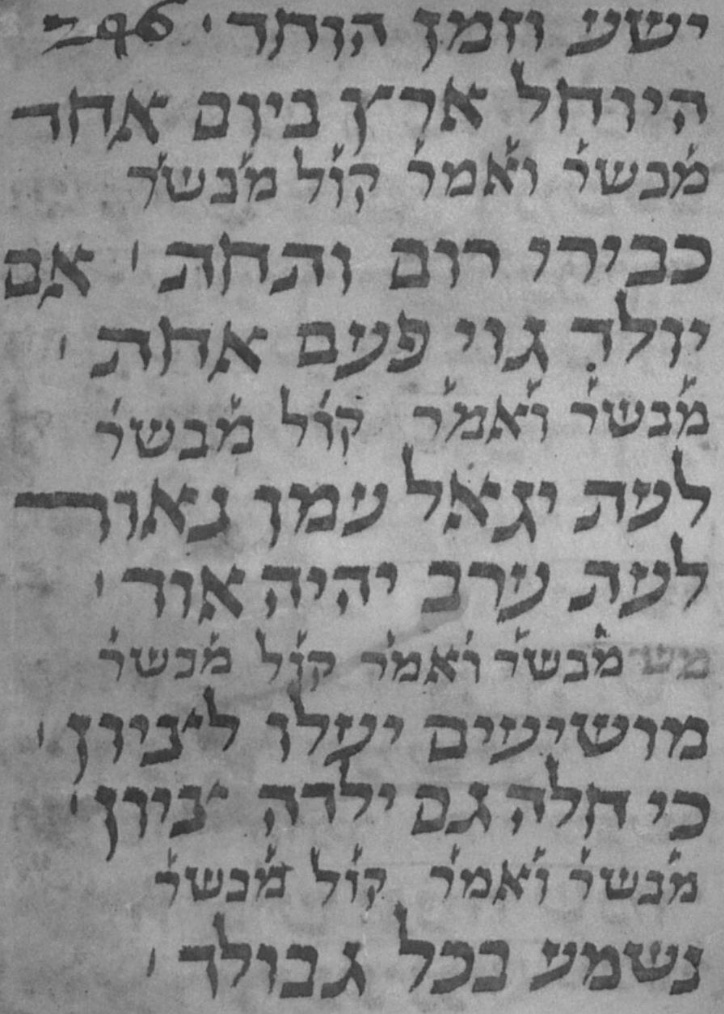 ישע וזמן הוחד · 296
היוחל ארץ ביום אחד
מבשר ואמר קול מבשר
כבירי רום ותחת ׳ אם
יולד גוי פעם אחת ׳
מבשר ואמר קול מבשר
לעת יגאל עמו נאור
לעת ערב יהיה אור ׳
מש מבשר ואמר קול מבשר
מושיעים יעלו לציון ׳
כי חלה גם ילדה ציון ׳
מבשר ואמר קול מבשר
נשמע בכל גבולך ׳